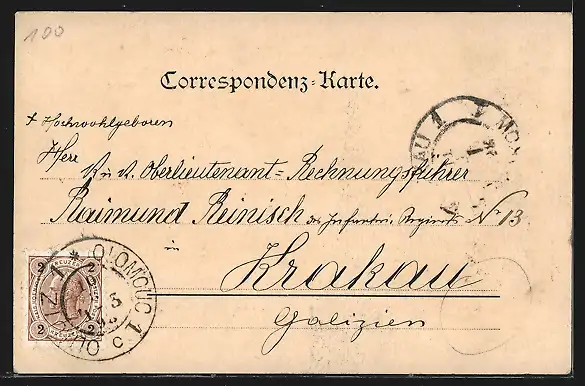 100
Correspondenz-Karte.
+ Hochwohlgeboren
Herr
K. u. K. Oberlieutenant = Rechnungsführer
Raimund Reinisch des Infantrie Regiments No 13
in
Krakau
Galizien
2 KREUZER 2
2 2
OLMÜTZ 1 * OLOMOUC 1
AU 1